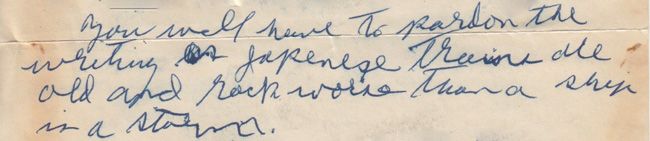 You will have to pardon the
writing as Japenese trains are
old and rock worse than a ship
in a storm.